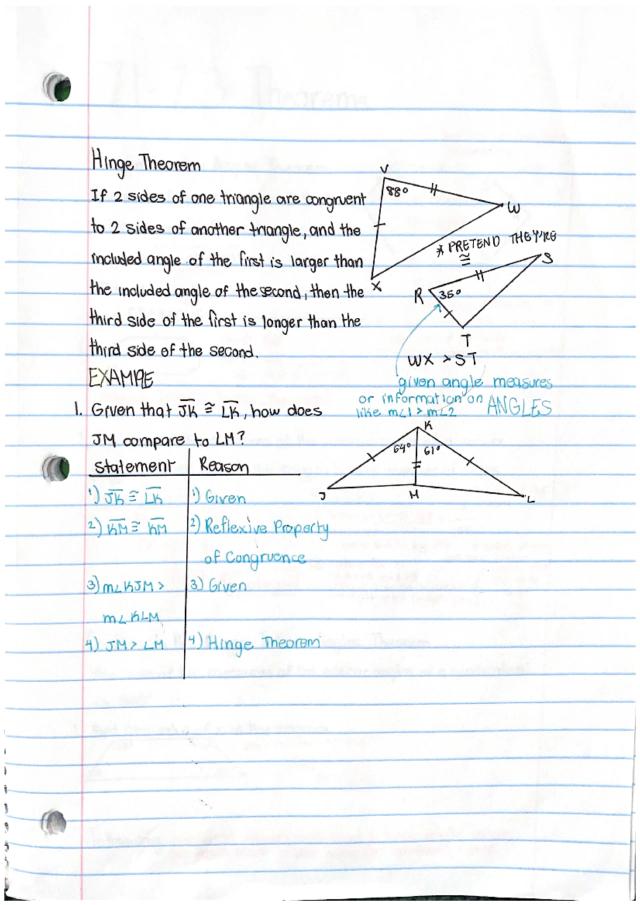 Hinge Theorem
If 2 sides of one triangle are congruent
to 2 sides of another triangle, and the
included angle of the first is larger than
the included angle of the second, then the
third side of the first is longer than the
third side of the second.
V
88°
W
X
* PRETEND THEY'RE
≅
S
R
35°
T
WX > ST
given angle measures
or information on ANGLES
like m∠1 > m∠2
EXAMPLE
1. Given that JK ≅ LK, how does
JM compare to LM?
K
64° 61°
J
M
L
Statement Reason
1) JK ≅ LK 1) Given
2) KM ≅ KM 2) Reflexive Property
of Congruence
3) m∠KJM > 3) Given
m∠KLM
4) JM > LM 4) Hinge Theorem